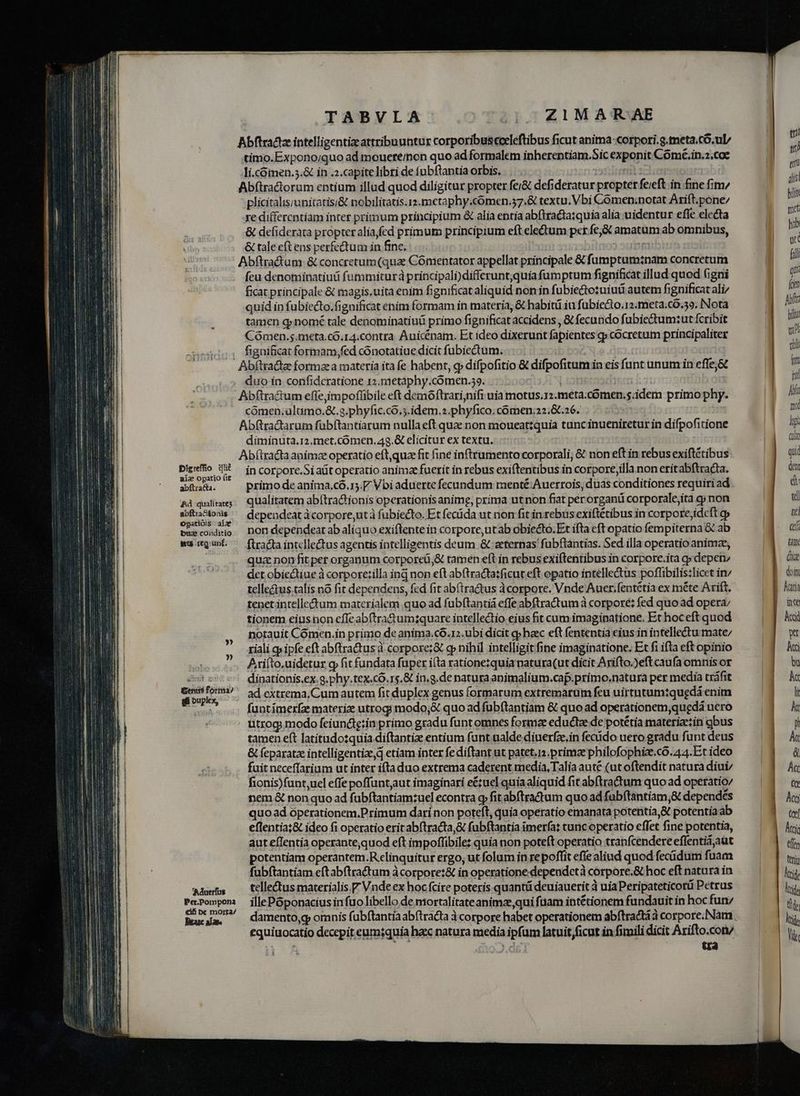 TABVLA ZIMARAE
Abſtractæ intelligentiæ attribuuntur corporibus cœleſtibus ſicut anima corpori.8.meta.cõ.ul⸗
timo.Expono,quo ad mouere,non quo ad formalem inherentiam.Sic exponit Cõmẽ.in.2.cœ
li.cõmen.3.& in .2.capite libri de ſubſtantia orbis.
Abſtractorum entium illud quod diligitur propter ſe,& deſideratur propter ſe,eſt in fine ſim⸗
plicitalis,unitatis,& nobilitatis.12.metaphy.cõmen.37.& textu.Vbi Cõmen.notat Ariſt.pone⸗
re differentiam inter primum principium & alia entia abſtracta:quia alia uidentur eſſe electa
& deſiderata propter alia,ſed primum principium eſt electum per ſe,& amatum ab omnibus,
& tale eſt ens perfectum in fine.
Abſtractum & concretum(quæ Cõmentator appellat principale & ſumptum:nam concretum
ſeu denominatiuũ ſummitur à principali)differunt,quia ſumptum ſignificat illud quod ſigni
ficat principale & magis.uita enim ſignificat aliquid non in ſubiecto:uiuũ autem ſignificat ali⸗
quid in ſubiecto.ſignificat enim formam in materia, & habitũ in ſubiecto.12.meta.cõ.39. Nota
tamen ꝙ nomẽ tale denominatiuũ primo ſignificat accidens, & ſecundo ſubiectum:ut ſcribit
Cõmen.5.meta.cõ.14.contra Auicẽnam. Et ideo dixerunt ſapientes ꝙ cõcretum principaliter
ſignificat formam,ſed cõnotatiue dicit ſubiectum.
Abſtractæ formæ a materia ita ſe habent, ꝙ diſpoſitio & diſpoſitum in eis ſunt unum in eſſe,&
duo in conſideratione 12.metaphy.cõmen.39.
Abſtractum eſſe,impoſſibile eſt demõſtrari,niſi uia motus.12.meta.cõmen.5.idem primo phy.
cõmen.ultimo.&.8.phyſic.cõ.3.idem.2.phyſico.cõmen.22.&.26.
Abſtractarum ſubſtantiarum nulla eſt quæ non moueat:quia tunc inueniretur in diſpoſitione
diminuta.12.met.cõmen.48.& elicitur ex textu.
Abſtracta animæ operatio eſt,quæ fit ſine inſtrumento corporali, & non eſt in rebus exiſtẽtibus
in corpore.Si aũt operatio animæ fuerit in rebus exiſtentibus in corpore,illa non erit abſtracta.
primo de anima.cõ.15.☞ Vbi aduerte ſecundum mentẽ Auerrois, duas conditiones requiri ad
qualitatem abſtractionis operationis animę, prima ut non fiat per organũ corporale,ita ꝙ non
dependeat à corpore,ut à ſubiecto. Et ſecũda ut non fit in rebus exiſtẽtibus in corpore,ideſt ꝙ
non dependeat ab aliquo exiſtente in corpore,ut ab obiecto.Et iſta eſt opatio ſempiterna & ab
ſtracta intellectus agentis intelligentis deum & æternas ſubſtantias. Sed illa operatio animæ,
quæ non fit per organum corporeũ,& tamen eſt in rebus exiſtentibus in corpore.ita ꝙ depen⸗
det obiectiue à corpore:illa inq̃ non eſt abſtracta:ſicut eſt opatio intellectus poſſibilis:licet in⸗
tellectus talis nõ ſit dependens, ſed ſit abſtractus à corpore. Vnde Auer.ſentẽtia ex mẽte Ariſt.
tenet intellectum materialem quo ad ſubſtantiã eſſe abſtractum à corpore: ſed quo ad opera⸗
tionem eius non eſſe abſtractum:quare intellectio eius fit cum imaginatione. Et hoc eſt quod
notauit Cõmen.in primo de anima.cõ.12.ubi dicit ꝙ hæc eſt ſententia eius in intellectu mate⸗
riali ꝙ ipſe eſt abſtractus à corpore:& ꝙ nihil intelligit ſine imaginatione. Et ſi iſta eſt opinio
Ariſto.uidetur ꝙ ſit fundata ſuper iſta ratione:quia natura(ut dicit Ariſto.)eſt cauſa omnis or
dinationis.ex.8.phy.tex.cõ.15.& in.9.de natura animalium.cap̃.primo.natura per media trãſit
ad extrema,Cum autem ſit duplex genus formarum extremarum ſeu uirtutum:quędã enim
ſunt ĩmerſæ materiæ utroq; modo,& quo ad ſubſtantiam & quo ad operationem,quędã uero
utroq; modo ſeiunctę:in primo gradu ſunt omnes formæ eductæ de potẽtia materiæ:in qbus
tamen eſt latitudo:quia diſtantiæ entium ſunt ualde diuerſæ.in ſecũdo uero gradu ſunt deus
& ſeparatæ intelligentiæ,q̃ etiam inter ſe diſtant ut patet.12.primæ philoſophiæ.cõ.44.Et ideo
fuit neceſſarium ut inter iſta duo extrema caderent media,Talia autẽ (ut oſtendit natura diui⸗
ſionis)ſunt,uel eſſe poſſunt,aut imaginari eẽ:uel quia aliquid ſit abſtractum quo ad operatio⸗
nem & non quo ad ſubſtantiam:uel econtra ꝙ ſit abſtractum quo ad ſubſtantiam,& dependẽs
quo ad operationem.Primum dari non poteſt, quia operatio emanat a potentia,& potentia ab
eſſentia:& ideo ſi operatio erit abſtracta,& ſubſtantia ĩmerſa: tunc operatio eſſet ſine potentia,
aut eſſentia operante,quod eſt impoſſibile: quia non poteſt operatio tranſcendere eſſentiã,aut
potentiam operantem.Relinquitur ergo, ut ſolum in re poſſit eſſe aliud quod ſecũdum ſuam
ſubſtantiam eſt abſtractum à corpore:& in operatione dependet à corpore.& hoc eſt natura in
tellectus materialis.☞ Vnde ex hoc ſcire poteris quantũ deuiauerit à uia Peripateticorũ Petrus
ille Põponacius in ſuo libello de mortalitate animæ,qui ſuam intẽtionem fundauit in hoc fun⸗
damento,ꝙ omnis ſubſtantia abſtracta à corpore habet operationem abſtractã à corpore.Nam
equiuocatio decepit eum:quia hæc natura media ipſum latuit,ſicut in ſimili dicit Ariſto.con⸗
tra
Digreſſio
abſtracta.
Ad qualitatẽ
abſtractionis
duæ conditio
”
”
Genus forma⸗
duplex,
Aduerſus
Pet.Pompona